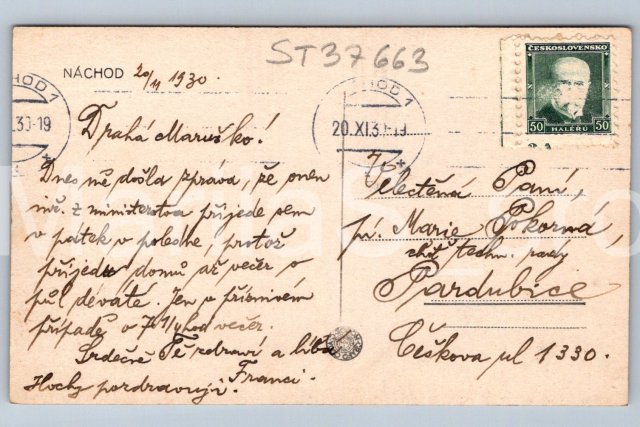 ST37663
ČESKOSLOVENSKO
50 HALÉŘŮ 50
NÁCHOD 20/11 1930.
NÁCHOD 1
20.XI.30-19
Drahá Maruško!
Dnes mě došla zpráva, že onen
inž. z ministerstva přijede sem
v pátek v poledne, protož
přijedu domů až večer o
půl deváté. Jen v příznivém
případě o 7 1/4 hod večer.
Srdečně Tě zdraví a líbá
Franci.
Hochy pozdravuji.
Velectěná Paní,
pí. Marie Pokorná,
techn. rady
Pardubice
Čėškova ul 1330.